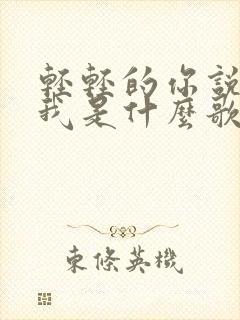 輕輕的你說
我是什麼歌
東條英機